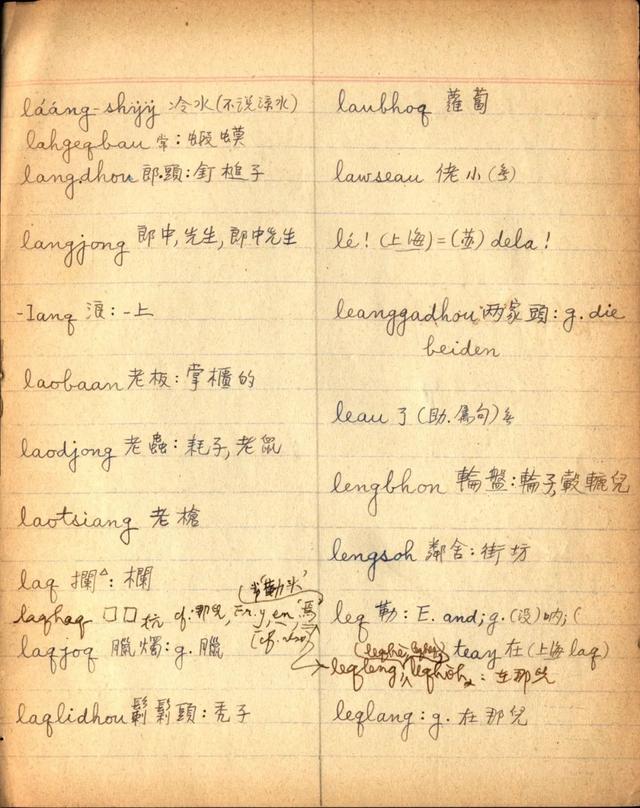 lááng-shyjy 冷水(不说涼水)
lahgeqbau 常:蝦蟆
langdhou 郎頭:釘槌子
langjong 郎中,先生,郎中先生
-lanq 浪:-上
laobaan 老板:掌櫃的
laodjong 老蟲:耗子,老鼠
laotsiang 老槍
laq 攔△:欄
laqhaq 囗囗 cf. 那兒, Fr. y, en
laqjoq 臘燭:g. 臘
laqlidhou 鬎鬁頭:禿子
laubhoq 蘿蔔
lawseau 佬小
lé! (上海)=(苏) dela!
leanggadhou 两家頭:g. die
beiden
leau 了(助.屬句)
lengbhon 輪盤:輪子,轂轆兒
lengsoh 鄰舍:街坊
leq 勒:E. and; g. (没)呐;(
teay 在(上海 laq)
leqleng, leqhoh:在那兒
leqlang:g. 在那兒